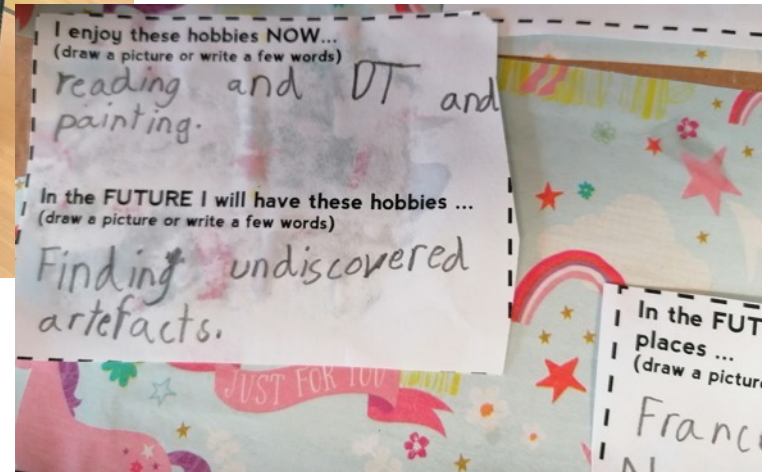 I enjoy these hobbies NOW...
(draw a picture or write a few words)
reading and DT and
painting.
In the FUTURE I will have these hobbies ...
(draw a picture or write a few words)
Finding undiscovered
artefacts.
JUST FOR YOU
In the FUT
places ...
(draw a picture
Franc